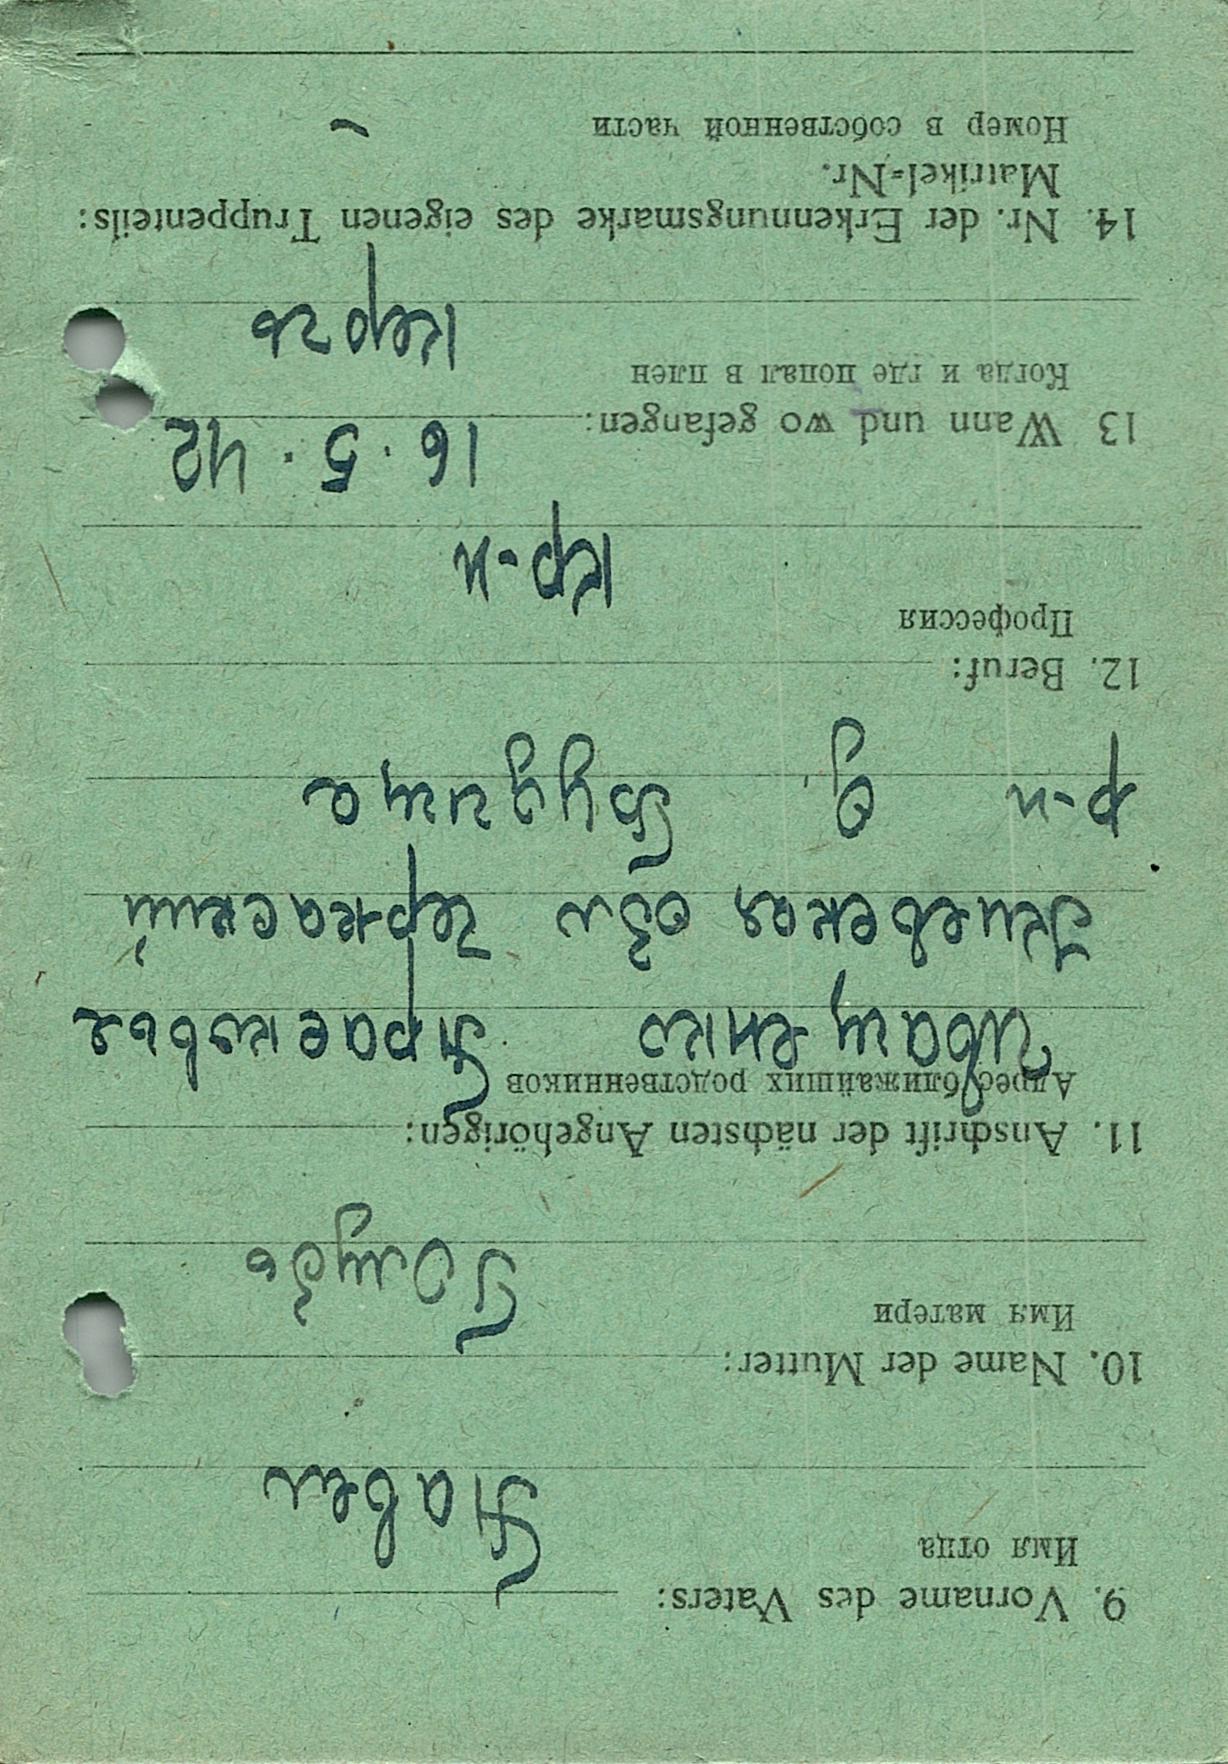 9. Vorname des Vaters:
Имя отца
Павел
10. Name der Mutter:
Имя матери
Голубь
11. Anschrift der nächsten Angehörigen:
Адрес ближайших родственников
Иващенко Прасковья
Киевская обл Черкаский
р-н д. Будища
12. Beruf:
Профессия
кр-н
13 Wann und wo gefangen:
16.5.42
Когда и где попал в плен
Керчь
14. Nr. der Erkennungsmarke des eigenen Truppenteils:
Matrikel=Nr.
Номер в собственной части
—